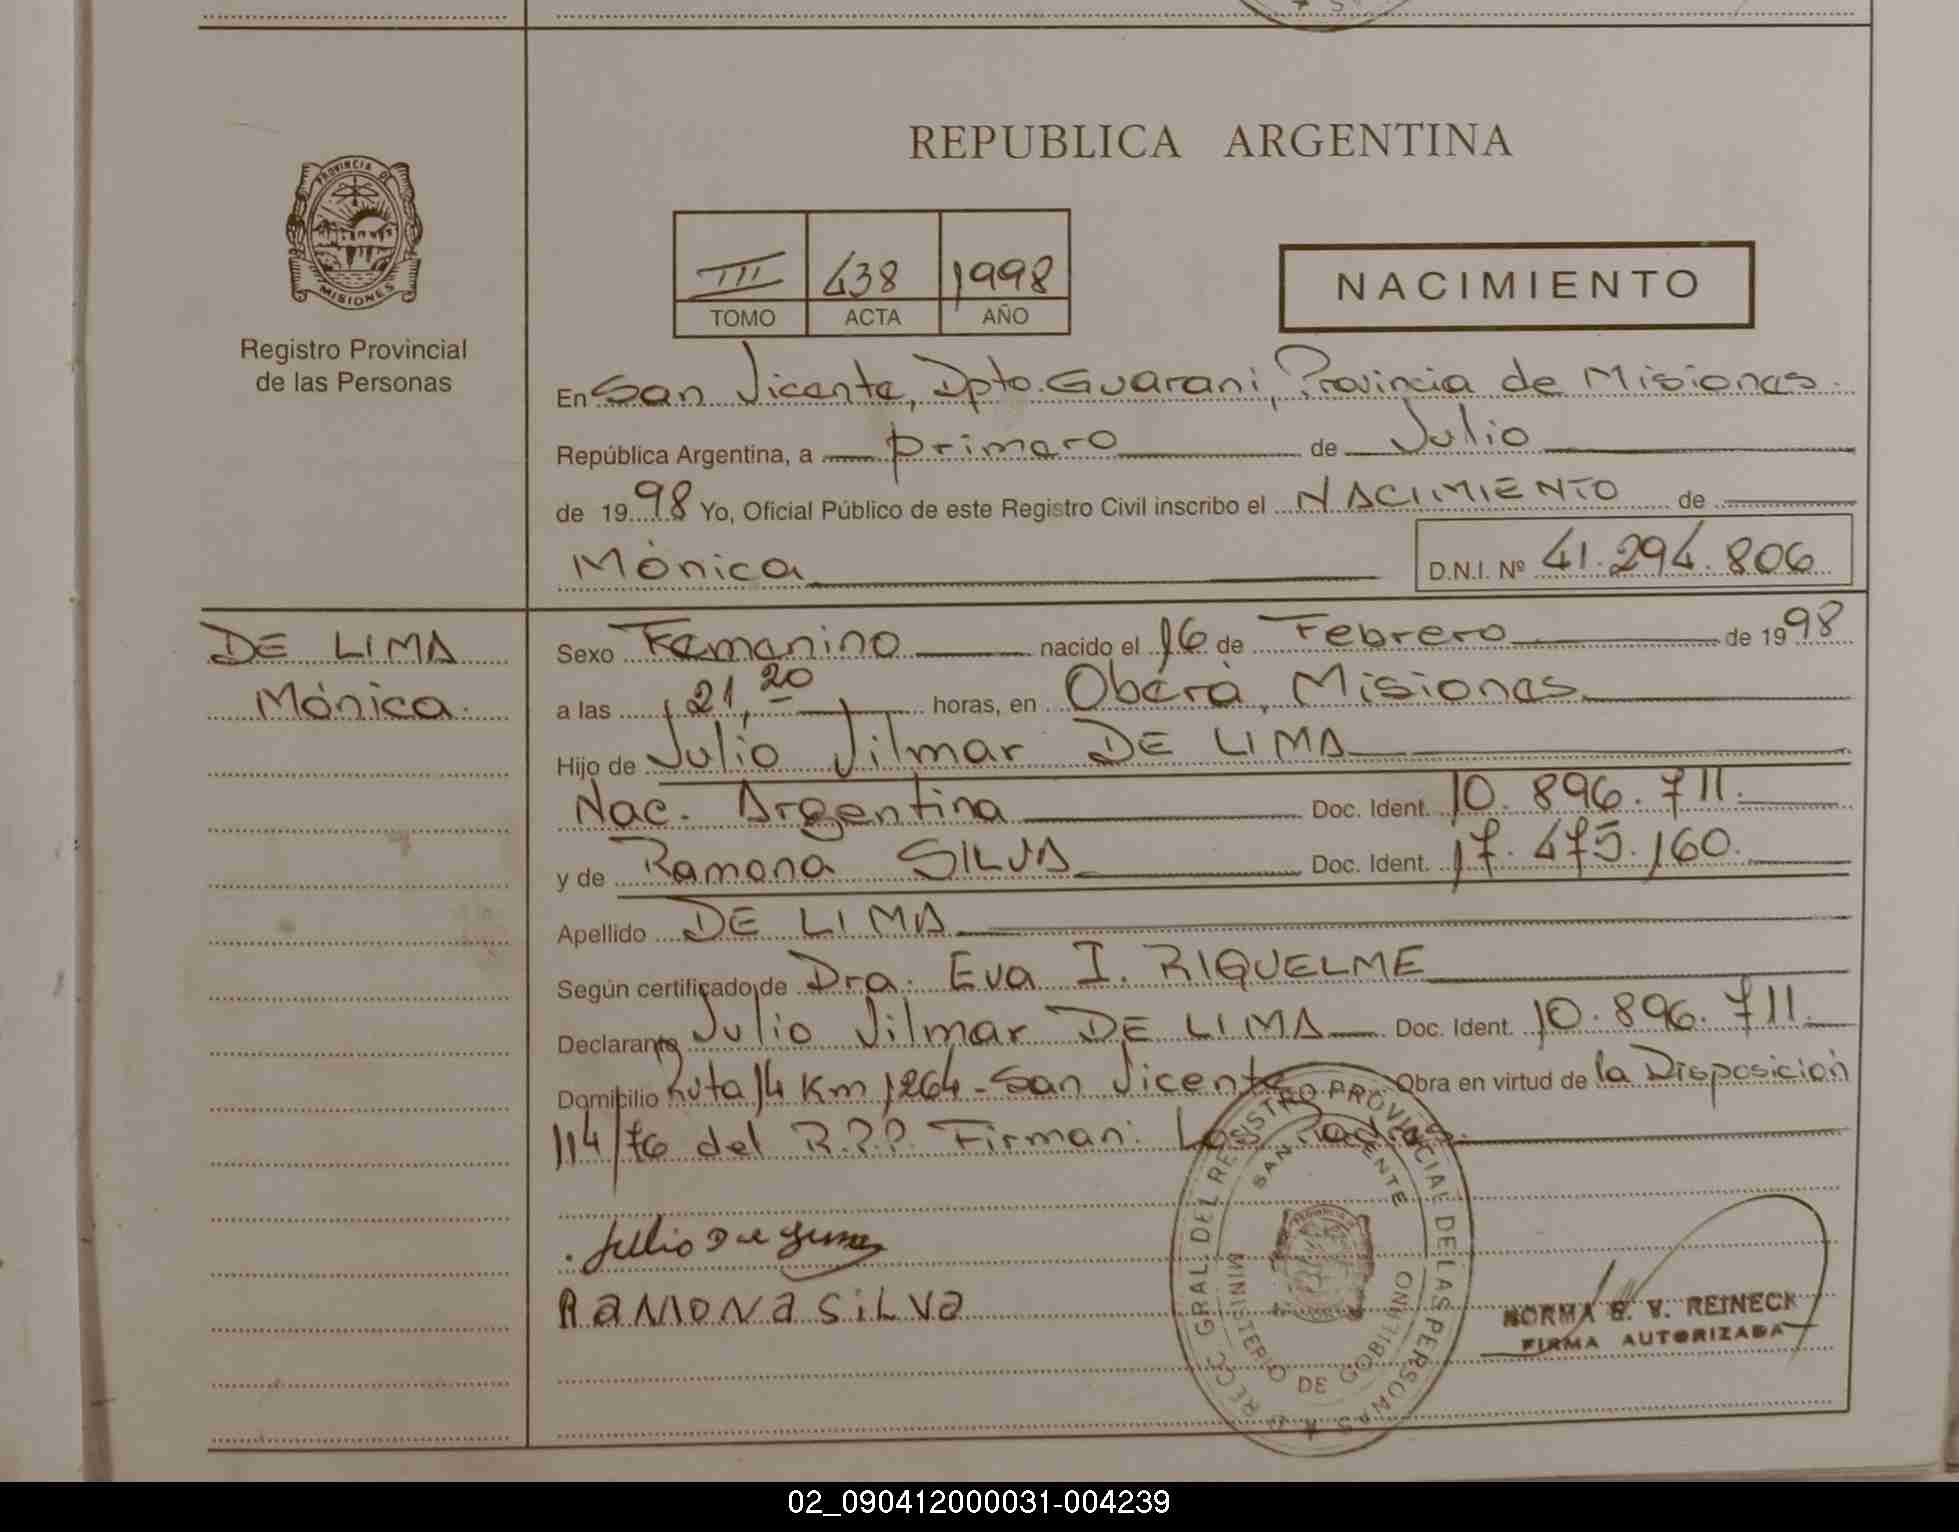 PROVINCIA DE
MISIONES
Registro Provincial
de las Personas
DE LIMA
Mónica.
REPUBLICA ARGENTINA
III 438 1998
TOMO ACTA AÑO
NACIMIENTO
En San Vicente, Dpto. Guarani, Provincia de Misiones.
República Argentina, a primero de Julio
de 1998 Yo, Oficial Público de este Registro Civil inscribo el NACIMIENTO de
Mónica D.N.I. Nº 41.294.806
Sexo Femenino nacido el 16 de Febrero de 1998
a las 21,20 horas, en Oberá, Misiones
Hijo de Julio Vilmar DE LIMA
Nac. Argentina Doc. Ident. 10.896.711.
y de Ramona SILVA Doc. Ident. 17.475.160.
Apellido DE LIMA
Según certificado de Dra. Eva I. RIQUELME
Declarante Julio Vilmar DE LIMA Doc. Ident. 10.896.711.
Domicilio Ruta 14 Km 1264 - San Vicente Obra en virtud de la Disposición
114/76 del R.P.P. Firman: Los Padres.
Julio De Lima
RAMONA SILVA
DIRECC. GRAL. DEL REGISTRO PROVINCIAL DE LAS PERSONAS
SAN VICENTE
MINISTERIO DE GOBIERNO
NORMA B. V. REINECK
FIRMA AUTORIZADA
02_090412000031-004239